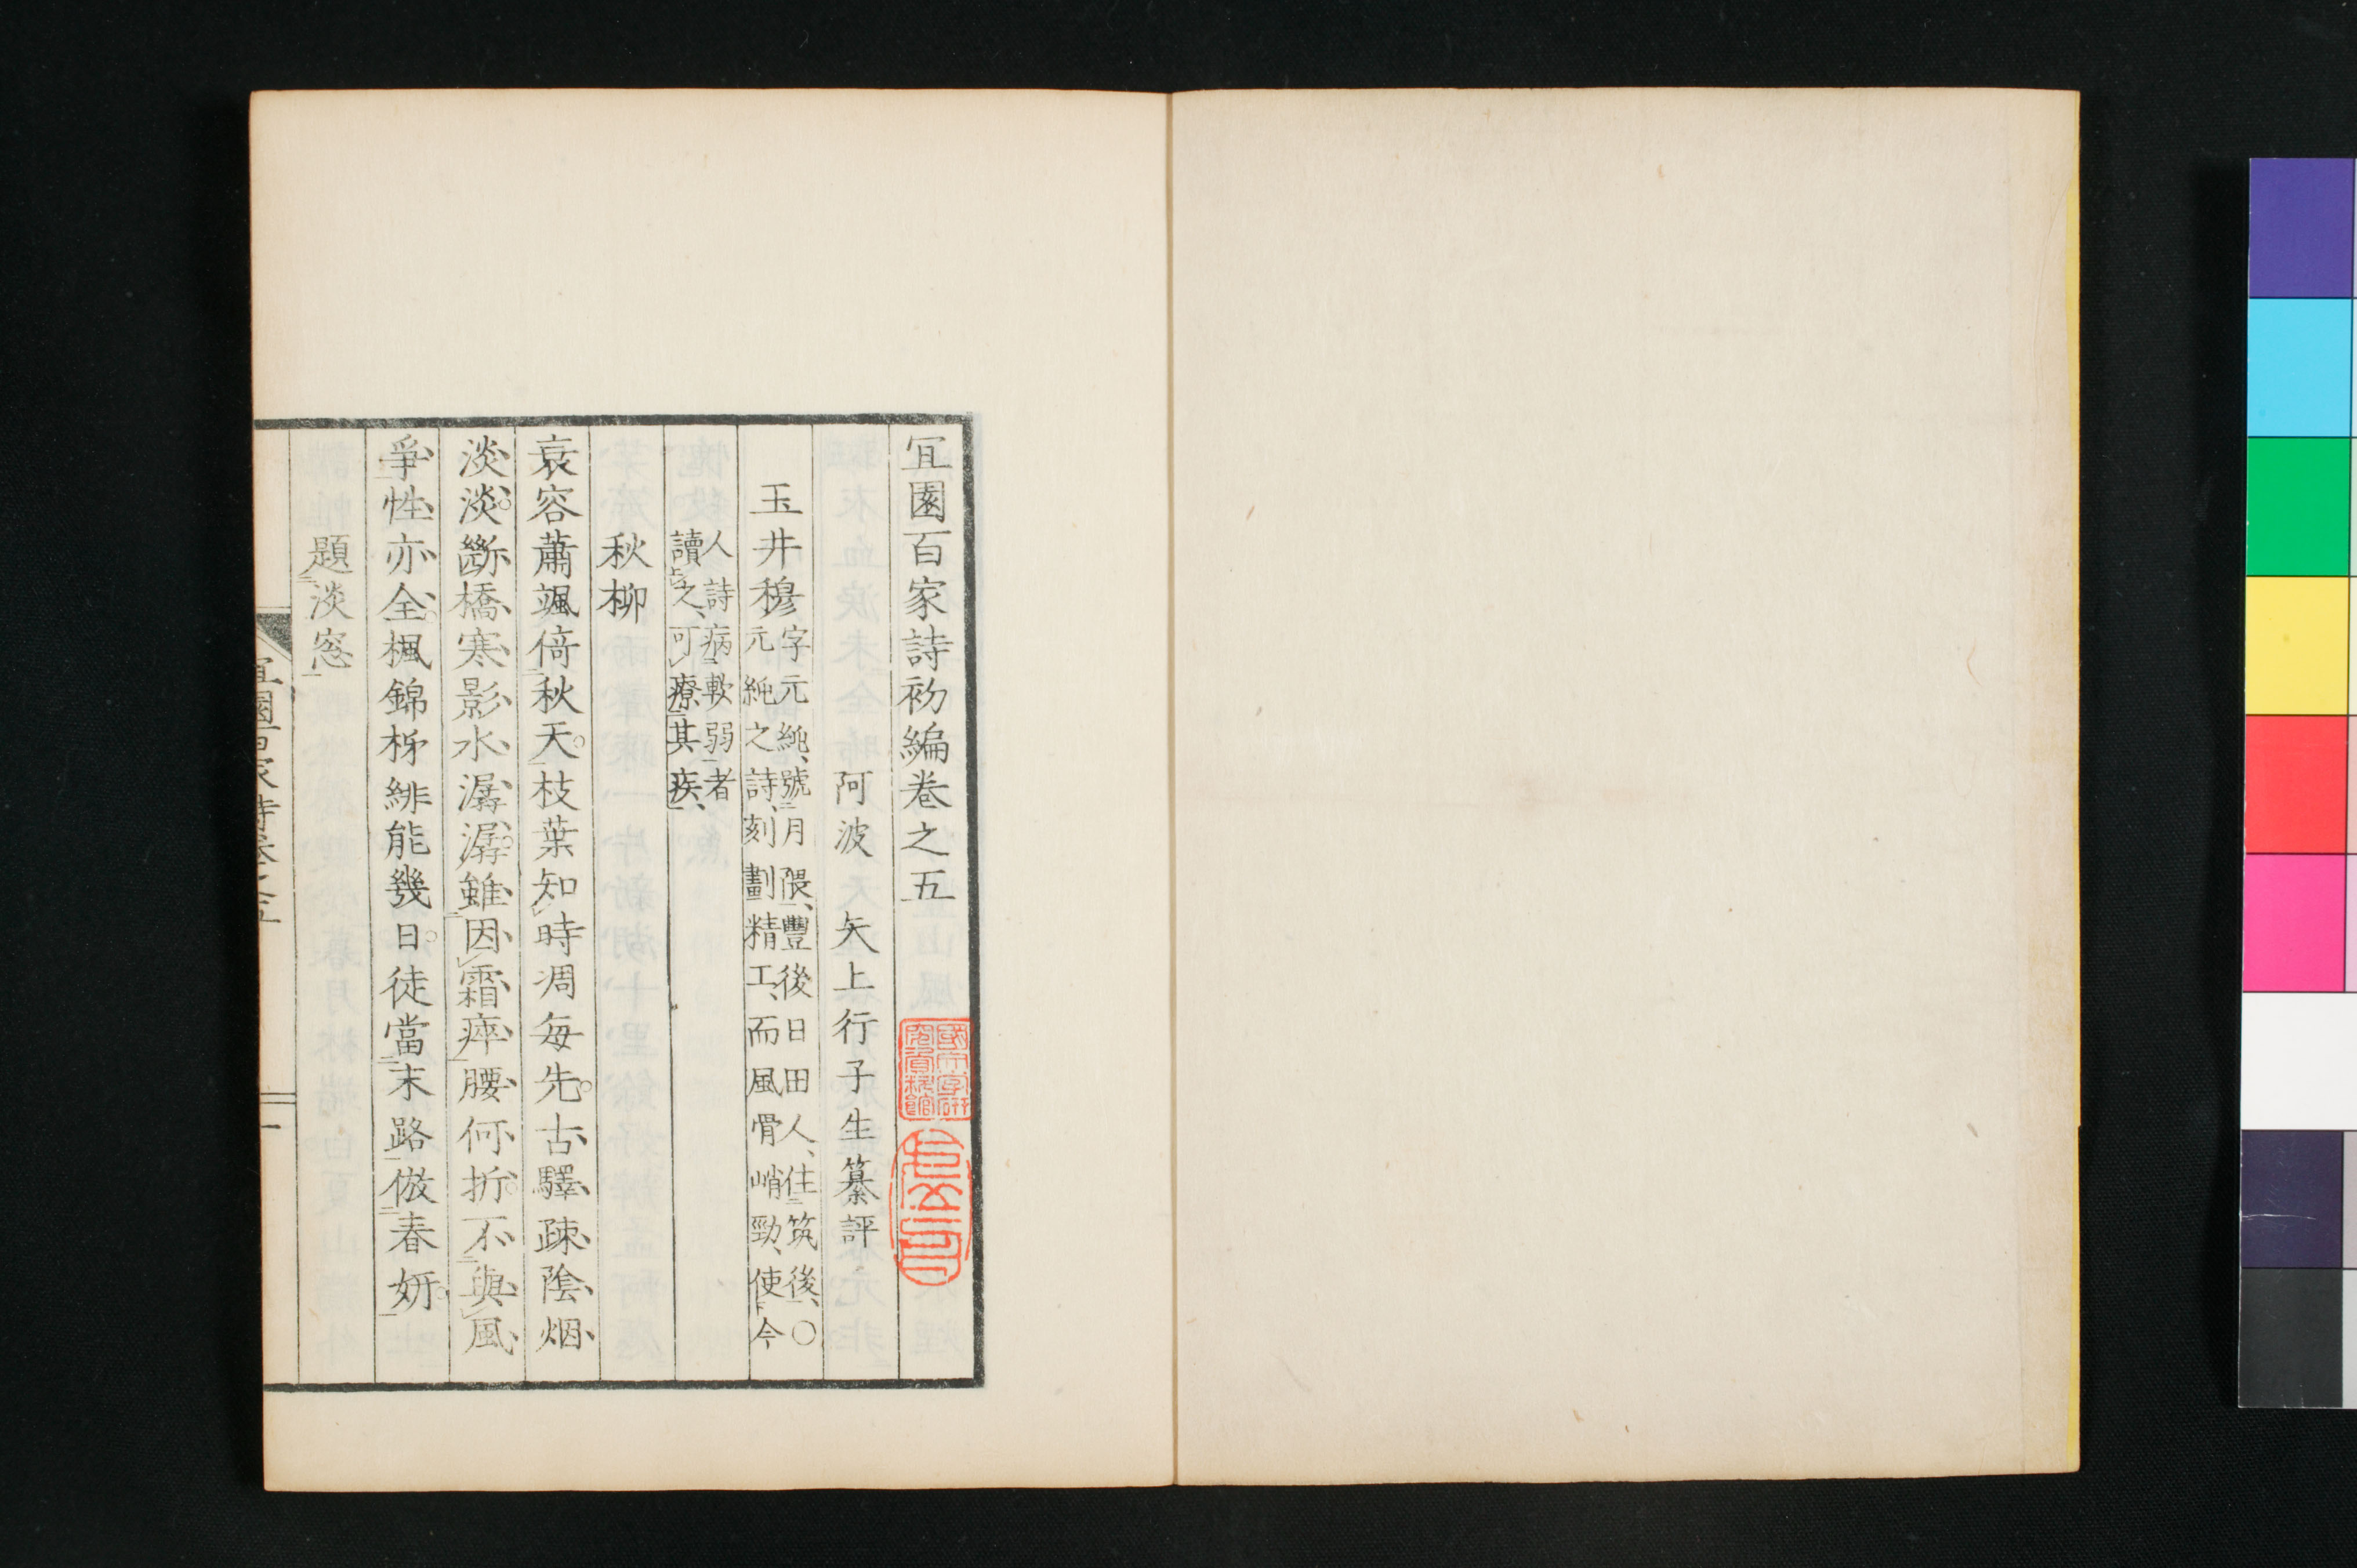 宜園百家詩初編巻之五
阿波 矢上行子生纂評
玉井穆
字元純、號月隈、豐後日田人、住筑後、○
元純之詩、刻劃精工、而風骨峭勁、使今
人詩病軟弱者
讀之、可療其疾、
秋柳
衰容蕭颯倚秋天。枝葉知時凋每先。古驛疎陰烟
淡淡。斷橋寒影水潺潺。雖因霜瘁腰何折。不與風
爭性亦全。楓錦柹緋能幾日。徒當末路倣春妍。
題淡窓
宜園百家詩卷之五
一
國文學研
究資料館